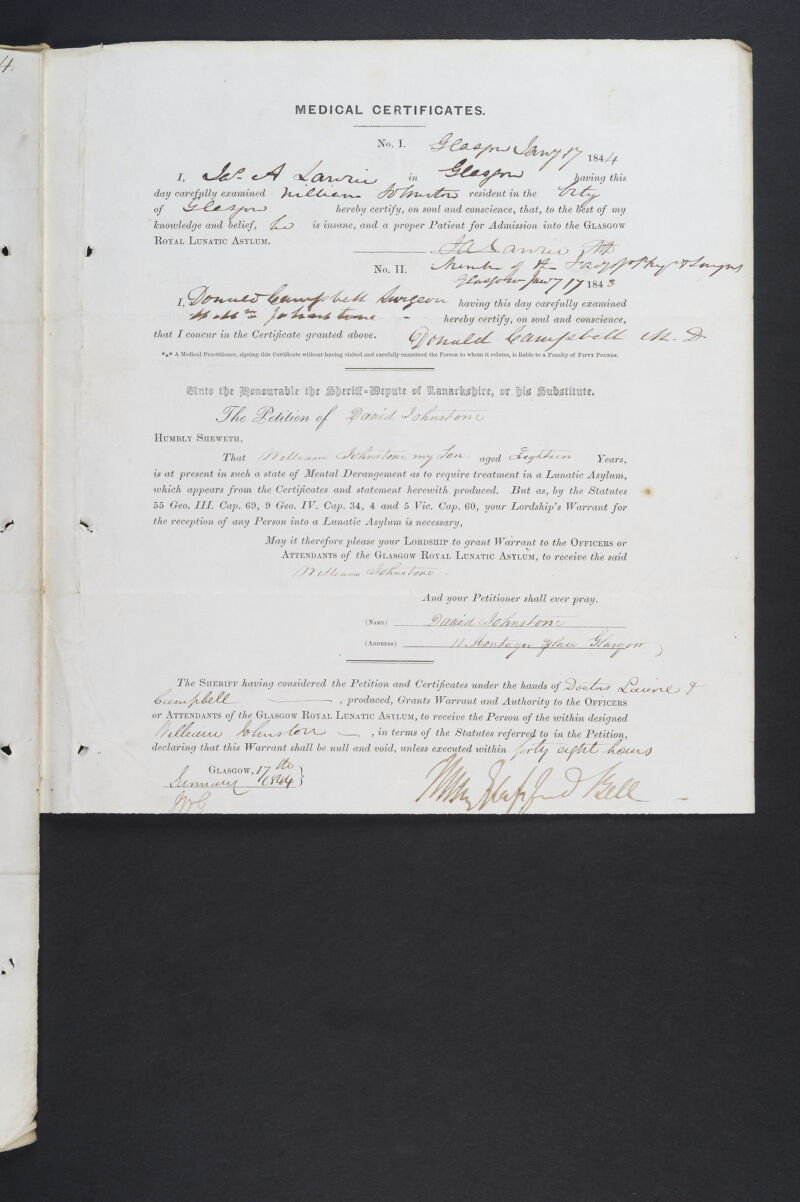 4.
MEDICAL CERTIFICATES.
No. I. Glasgow Jany 17 1844
I, Jas. A Lawrie in Glasgow having this
day carefully examined William Johnston resident in the City
of Glasgow hereby certify, on soul and conscience, that, to the best of my
knowledge and belief, he is insane, and a proper Patient for Admission into the GLASGOW
ROYAL LUNATIC ASYLUM.
JA Lawrie, MD
No. II. Member of the Facy of Phys & Surgns
Glasgow Jany 17 1843
I, Donald Campbell Surgeon having this day carefully examined
Willm Johnstone - hereby certify, on soul and conscience,
that I concur in the Certificate granted above. Donald Campbell M. D.
*** A Medical Practitioner, signing this Certificate without having visited and carefully examined the Person to whom it relates, is liable to a Penalty of FIFTY POUNDS.
Unto the Honourable the Sheriff-Depute of Lanarkshire, or his Substitute.
The Petition of David Johnstone
HUMBLY SHEWETH,
That William Johnstone my Son aged Eighteen Years,
is at present in such a state of Mental Derangement as to require treatment in a Lunatic Asylum,
which appears from the Certificates and statement herewith produced. But as, by the Statutes
55 Geo. III. Cap. 69, 9 Geo. IV. Cap. 34, 4 and 5 Vic. Cap. 60, your Lordship's Warrant for
the reception of any Person into a Lunatic Asylum is necessary,
May it therefore please your LORDSHIP to grant Warrant to the OFFICERS or
ATTENDANTS of the GLASGOW ROYAL LUNATIC ASYLUM, to receive the said
William Johnstone.
And your Petitioner shall ever pray.
(NAME) David Johnstone
(ADDRESS) 11. Montague place Glasgow
The SHERIFF having considered the Petition and Certificates under the hands of Doctors Laurie &
Campbell , produced, Grants Warrant and Authority to the OFFICERS
or ATTENDANTS of the GLASGOW ROYAL LUNATIC ASYLUM, to receive the Person of the within designed
William Johnston , in terms of the Statutes referred to in the Petition,
declaring that this Warrant shall be null and void, unless executed within forty eight hours
GLASGOW, 17th
January 1844 } Henry Glassford Bell